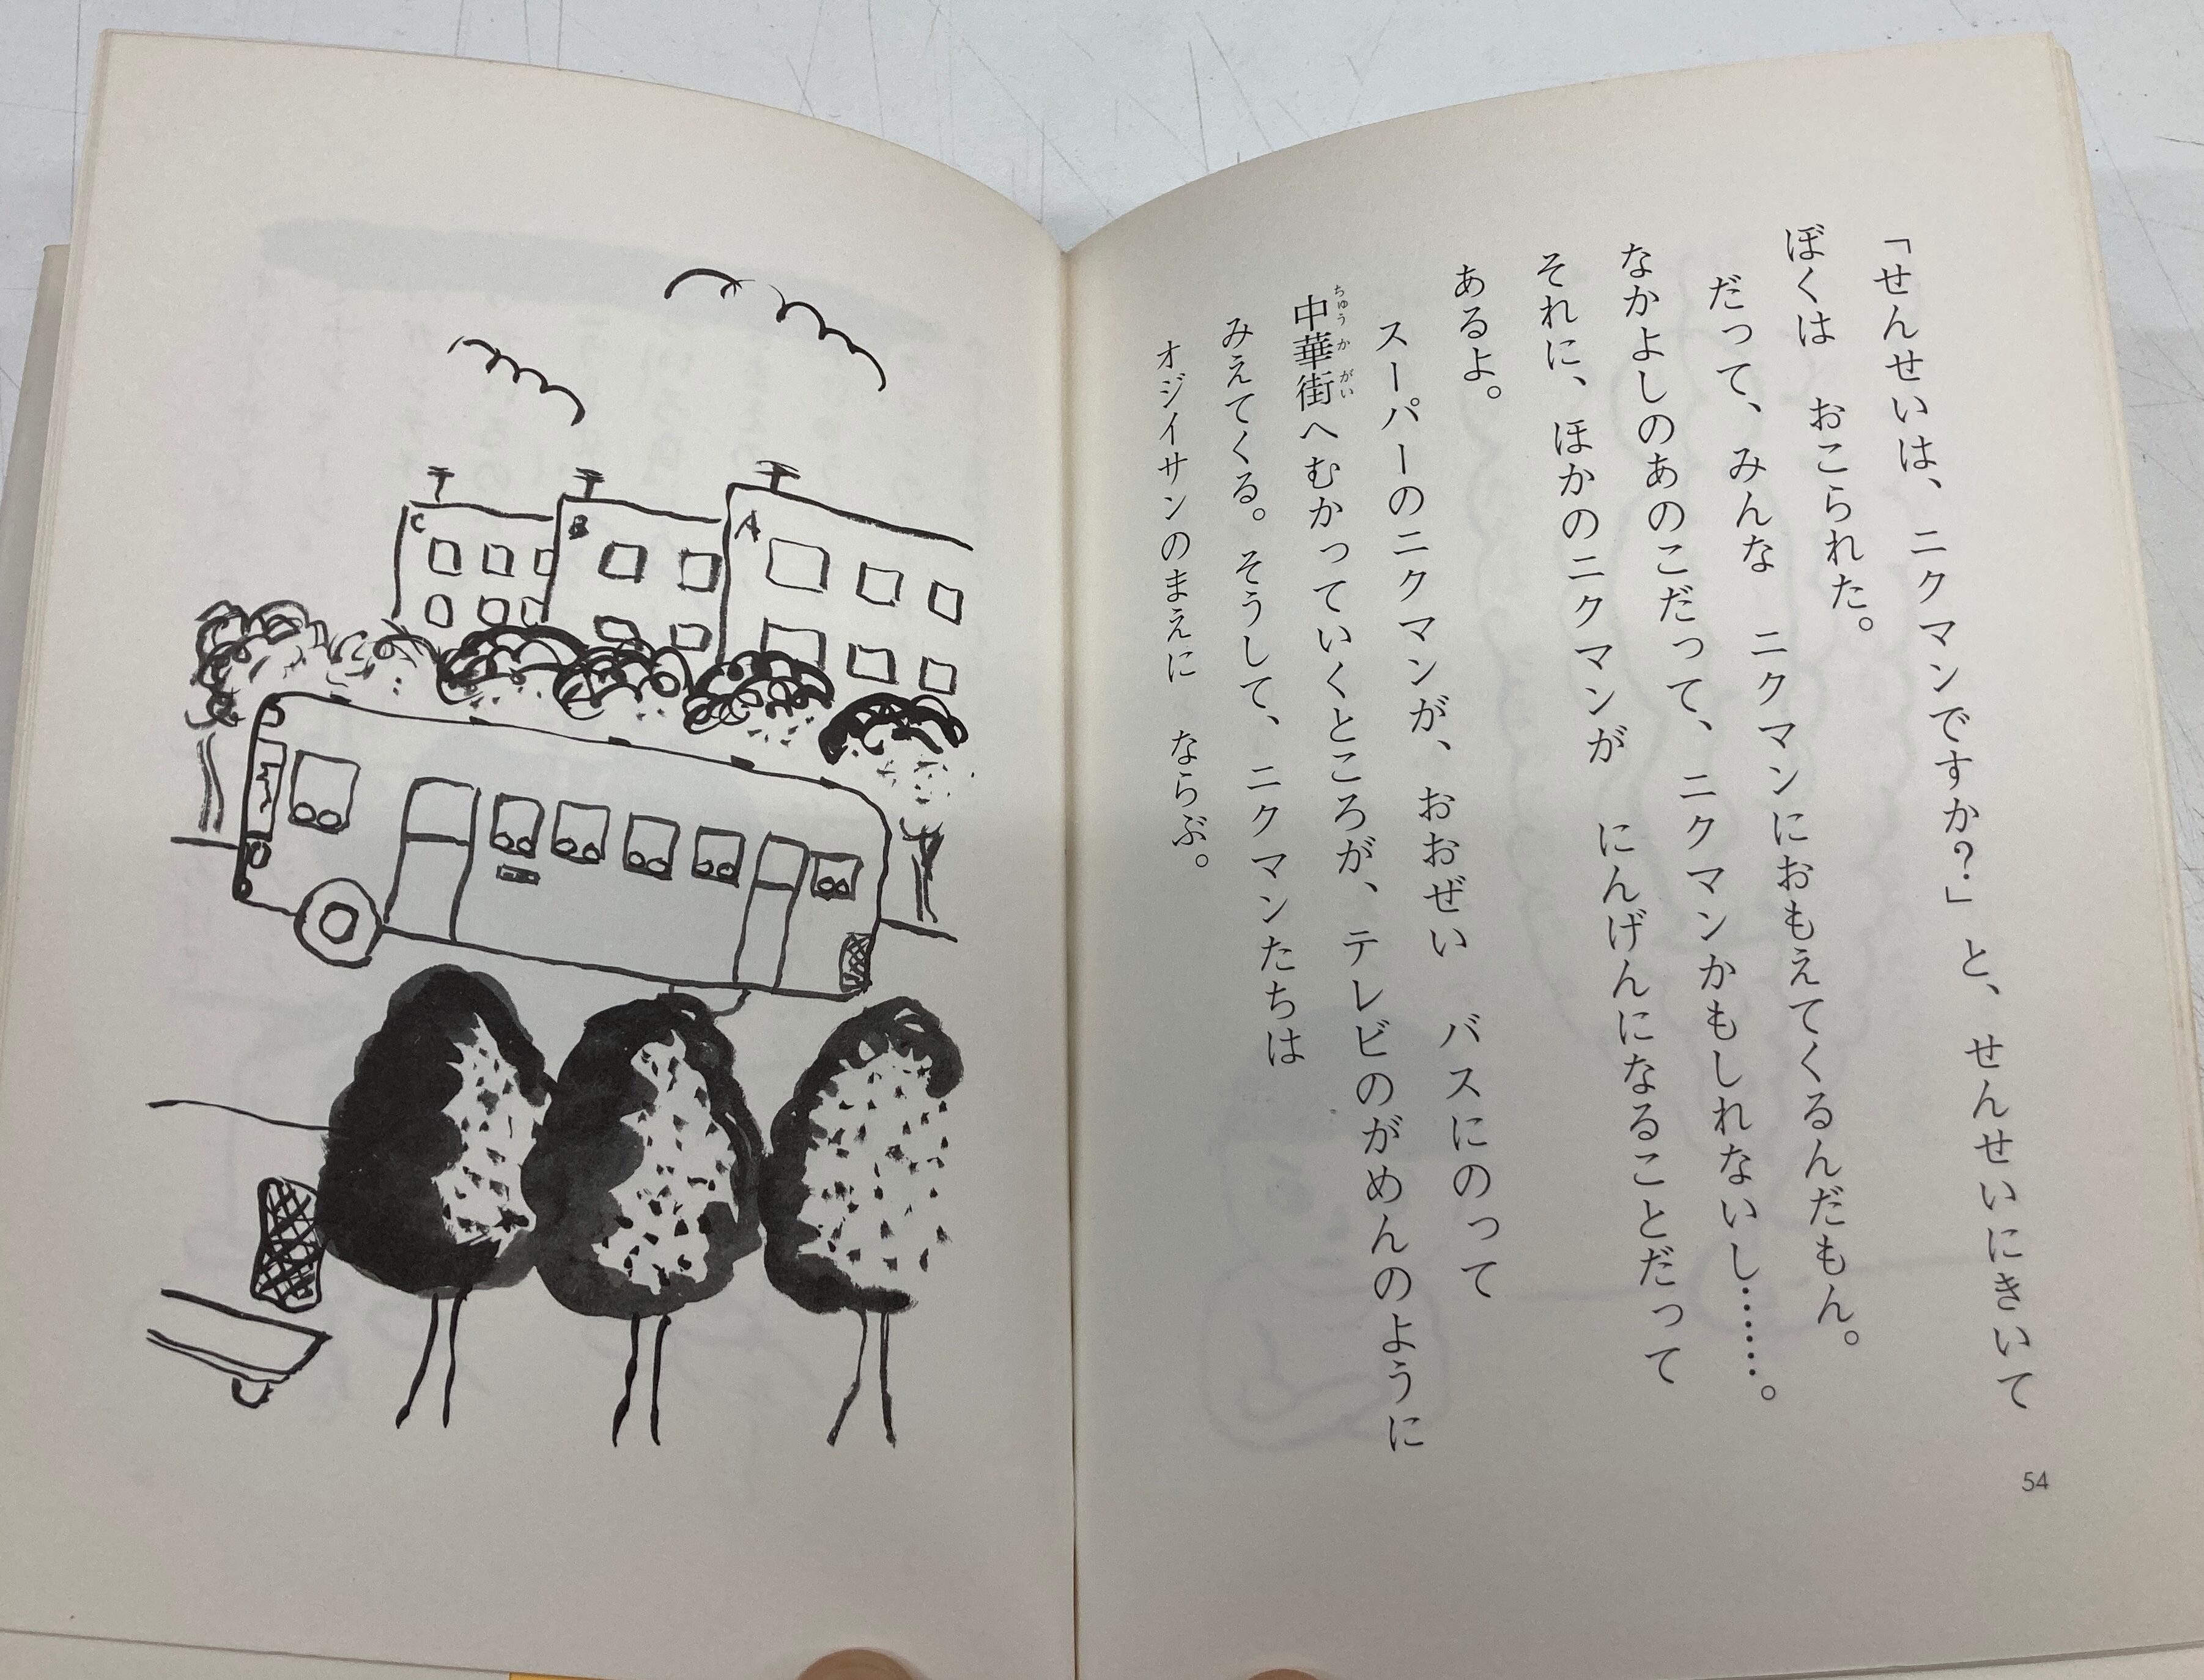 「せんせいは、ニクマンですか？」と、せんせいにきいて
ぼくは　おこられた。
だって、みんな　ニクマンにおもえてくるんだもん。
なかよしのあのこだって、ニクマンかもしれないし……。
それに、ほかのニクマンが　にんげんになることだって
あるよ。
スーパーのニクマンが、おおぜい　バスにのって
ちゅうかがい
中華街へむかっていくところが、テレビのがめんのように
みえてくる。そうして、ニクマンたちは
オジイサンのまえに　ならぶ。
54
A
B
C